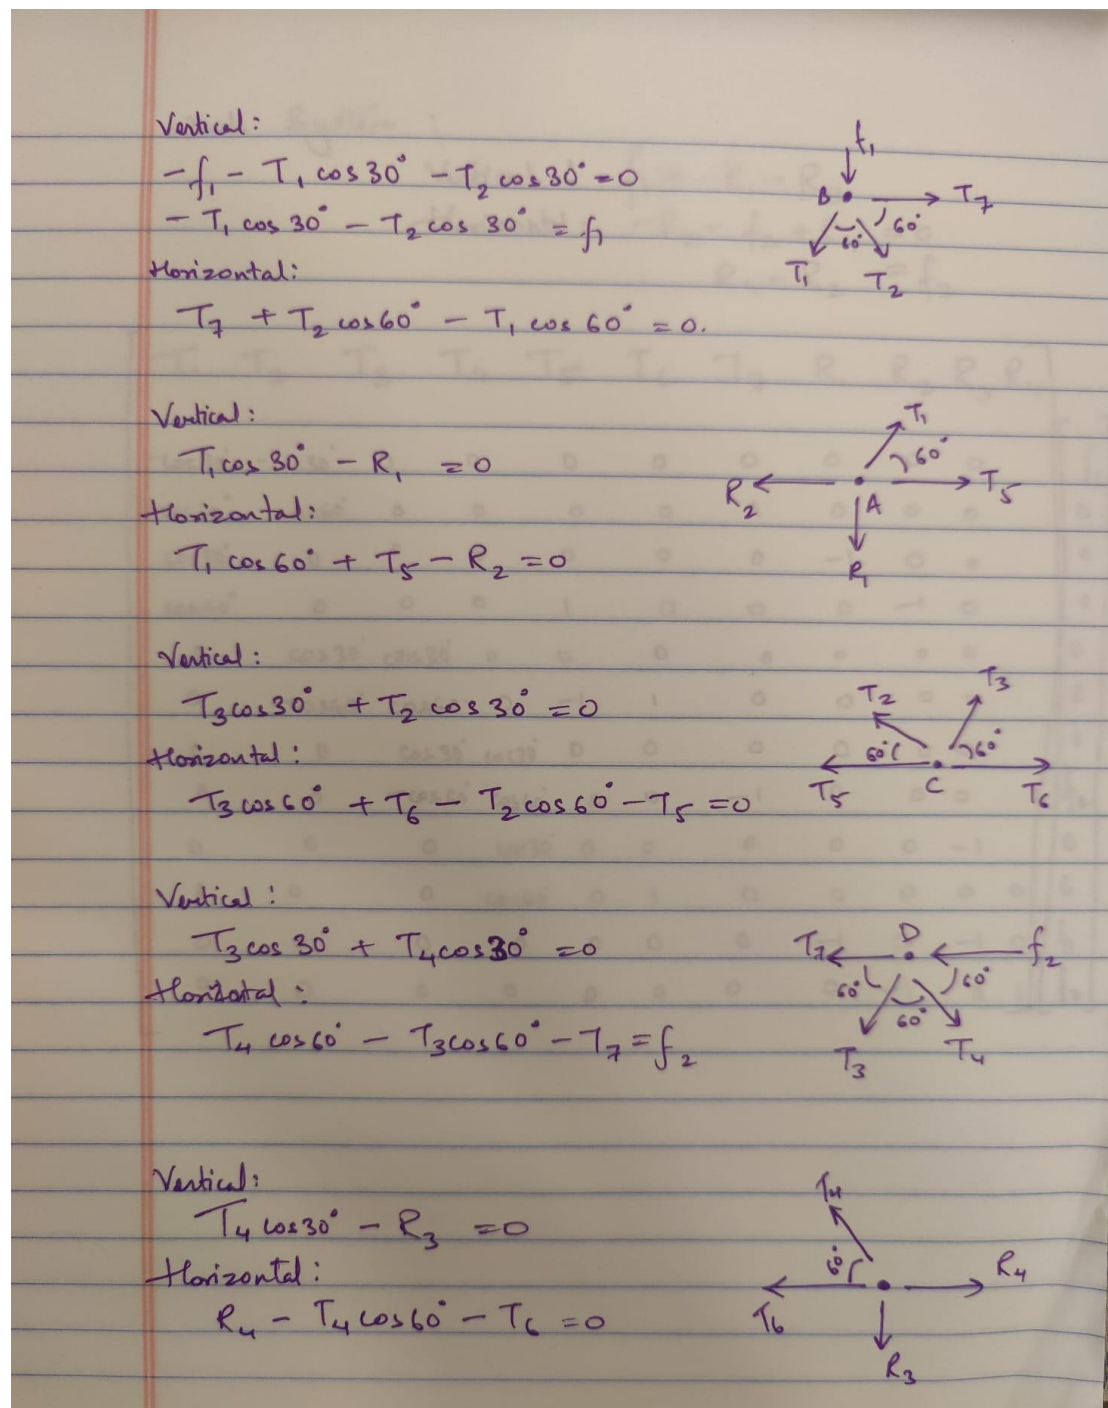 Vertical:
-f₁ - T₁ cos30° - T₂ cos30° = 0
- T₁ cos 30° - T₂ cos 30° = f₁
Horizontal:
T₇ + T₂ cos60° - T₁ cos 60° = 0.
f₁
B
T₇
60°
60°
T₁
T₂
Vertical:
T₁ cos 30° - R₁ = 0
Horizontal:
T₁ cos 60° + T₅ - R₂ = 0
T₁
60°
R₂
T₅
A
R₁
Vertical:
T₃ cos30° + T₂ cos 30° = 0
Horizontal:
T₃ cos60° + T₆ - T₂ cos60° - T₅ = 0
T₂
T₃
60°
60°
T₅
C
T₆
Vertical:
T₃ cos 30° + T₄ cos30° = 0
Horizotal:
T₄ cos60° - T₃ cos60° - T₇ = f₂
T₇
D
f₂
60°
60°
60°
T₃
T₄
Vertical:
T₄ cos30° - R₃ = 0
Horizontal:
R₄ - T₄ cos60° - T₆ = 0
T₄
60°
R₄
T₆
R₃